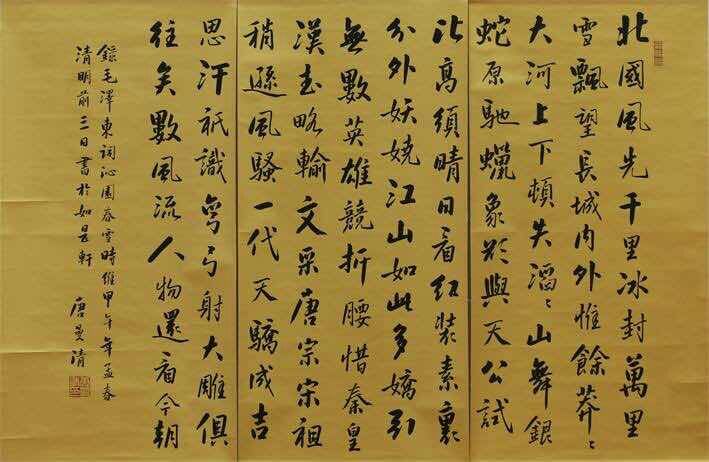 北國風光千里冰封萬里
雪飄望長城內外惟餘莽〻
大河上下頓失滔〻山舞銀
蛇原馳蠟象欲與天公試
比高須晴日看紅裝素裹
分外妖嬈江山如此多嬌引
無數英雄競折腰惜秦皇
漢武略輸文采唐宗宋祖
稍遜風騷一代天驕成吉
思汗祇識彎弓射大雕俱
往矣數風流人物還看今朝
錄毛澤東詞沁園春雪時維甲午年孟春
清明前三日書於如是軒